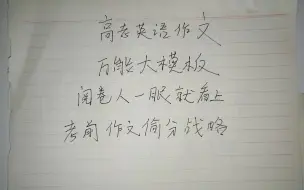 高考英语作文
万能大模板
阅卷人一眼就看上
考前作文偷分战略